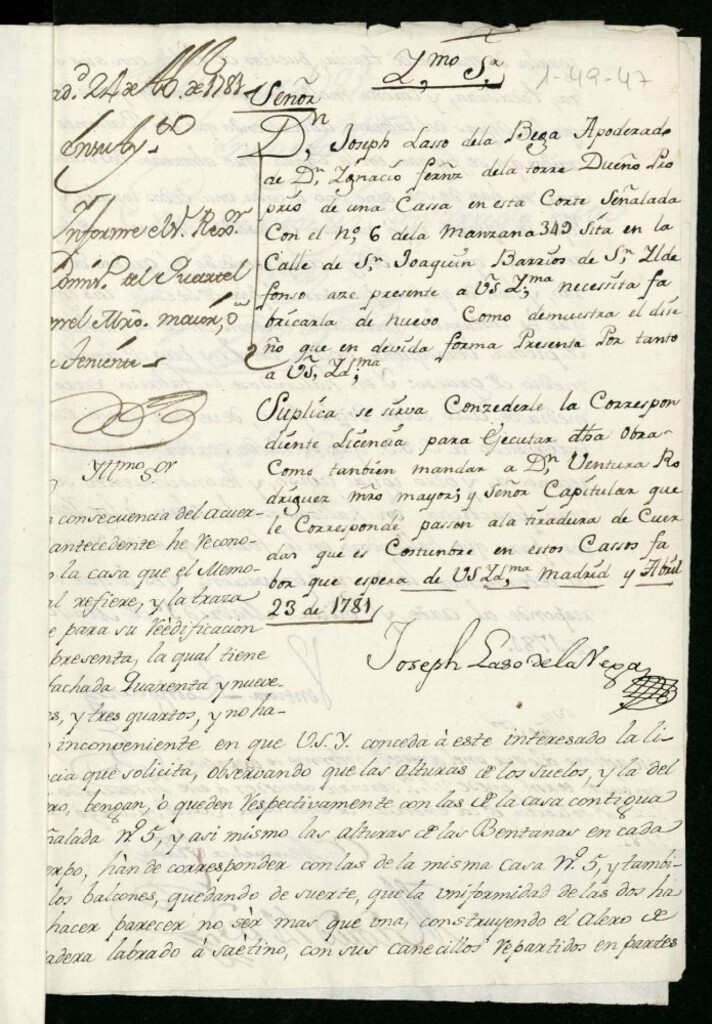 Y,mo Sr,
1-49-47
24 de Ab. de 1781
Señor
Dn, Joseph Lasso dela Bega Apoderado
de Dn, Ygnacio fernz dela torre Dueño Pro
prio de una Cassa en esta Corte Señalada
Con el nº, 6 dela Manzana 343 Sita en la
Calle de Sn, Joaquin Barrios de Sn, Ylde
fonso aze presente a VS Y;ma necessita fa
bricarla de nuevo Como demuestra el dise
ño que en devida forma Presenta Por tanto
a VS, Yl;ma
Suplica se sirva Conzederle la Correspon
diente Licencia para Ejecutar dha Obra
Como tanbien mandar a Dn, Ventura Ro
driguez mro mayor; y Señor Capitular que
le Corresponde passen ala tiradura de Cuer
das que es Costunbre en estos Cassos fa
bor que espera de VS Yl,ma Madrid y Abril
23 de 1781
Joseph Laso de la Vega
Informe el Sr. Rexor
del Quartel
el Mro. maior, ò
Teniente
Yllmo Sor
consecuencia del acuer-
antecedente he recono-
la casa que el Memo-
refiere, y la traza
para su reedificacion
presenta, la qual tiene
fachada Quarenta y nueve
y tres quartos, y no ha-
inconveniente en que V.S.Y. conceda à este interesado la li-
que solicita, observando que las alturas de los suelos, y la del
tengan, ò queden respectivamente con las de la casa contigua
Nº. 5, y asi mismo las alturas de las Bentanas en cada
han de corresponder con las de la misma casa Nº. 5, y tambi-
los balcones, quedando de suerte, que la uniformidad de las dos ha
hacer parecer no ser mas que una, construyendo el alero de
labrado à saètino, con sus canecillos repartidos en partes